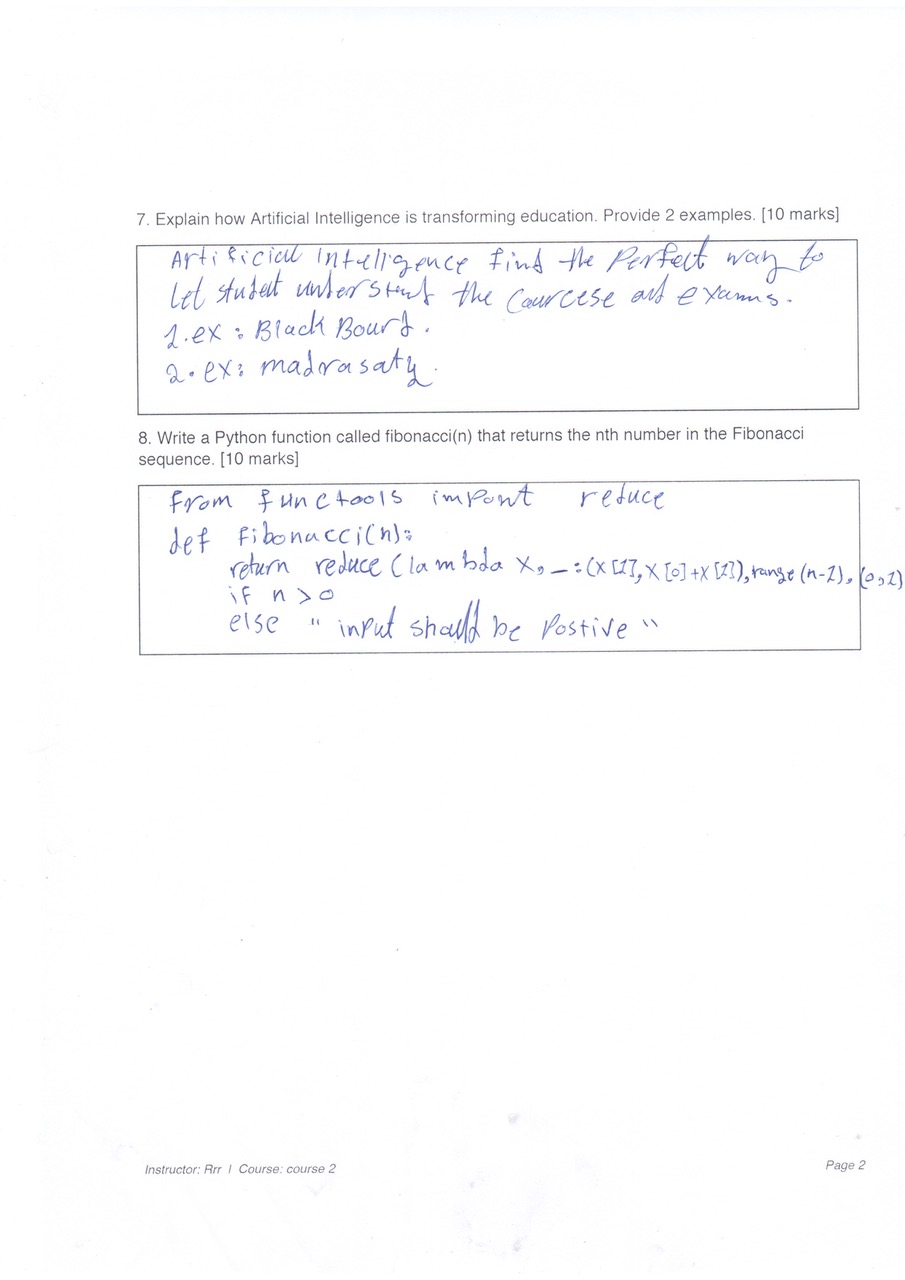 7. Explain how Artificial Intelligence is transforming education. Provide 2 examples. [10 marks]
Artificial Intelligence find the Perfect way to
Let student understand the Courcese and exams.
1.ex : Black Bourd.
2.ex: madrasaty.
8. Write a Python function called fibonacci(n) that returns the nth number in the Fibonacci
sequence. [10 marks]
from functools import reduce
def fibonacci(n):
return reduce (lambda x, _ : (x [1], x [0] + x [1]), range (n-1), (0,1)
if n > 0
else " input should be Postive "
Instructor: Rrr | Course: course 2
Page 2